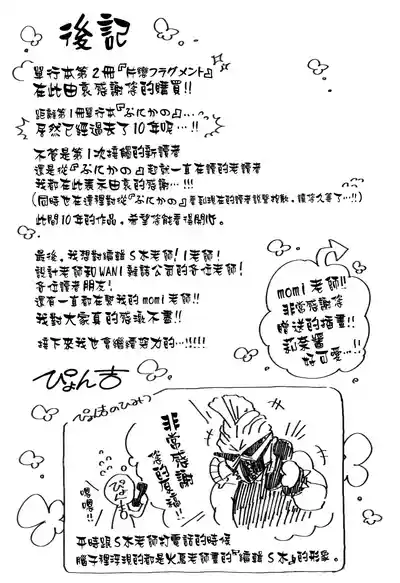 後記
單行本第2冊『片戀フラグメント』
在此由衷感謝您的購買!!
距離第1冊單行本『ぷにかの』…
居然已經過去了10年呢…!!
不管是第1次接觸的新讀者
還是從『ぷにかの』起就一直在讀的老讀者
我都在此表示由衷的感謝…!!!
(同時也在這裡對從『ぷにかの』看到現在的讀者說聲抱歉，讓您久等了…!!)
此間10年的作品，希望您能看得開心。
最後，我想對編輯S木老師!I老師!
設計老師和WANI雜誌公司的各位老師!
各位讀者朋友!
還有一直都在幫我的momi老師!!
我對大家真的感激不盡!!
接下來我也會繼續努力的…!!!!!
momi老師!!
非常感謝您
贈送的插畫!!
莉茉醬
好可愛…!!
ぴょん吉
ぴょん吉のひみつ
非常感謝
您的惠播!!
ぴょ吉
嗯嗯!!
平時跟S木老師打電話的時候
腦子裡浮現的都是火鳥老師畫的『編輯S木』的形象。